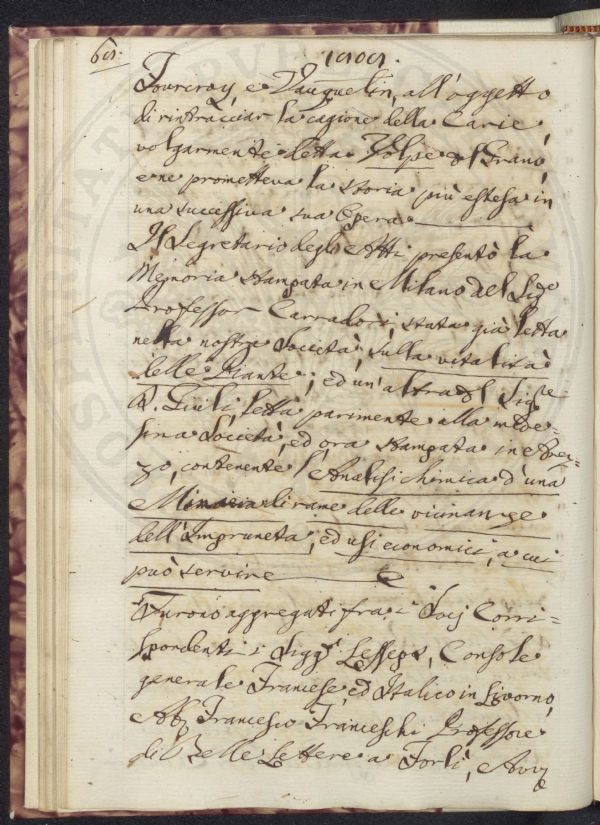 Fourcroy, e Vauquelin, all'oggetto
di rintracciar la cagione della Carie,
volgarmente detta Volpe del Grano,
e ne prometteva la storia più estesa in
una successiva sua Opera.
Il Segretario degli Atti presentò la
Memoria stampata in Milano del Sig.e
Professor Carradori, stata già letta
nella nostra Società, sulla vitalità
delle Piante; ed un'altra del Sig.re
D. Giuli, letta parimente alla mede-
sima Società, ed ora stampata in Arez-
zo, contenente l'Analisi chimica d'una
Miniera di rame delle vicinanze
dell'Impruneta, ed usi economici, a cui
può servire
Furono aggregati fra i Socj Corri=
spondenti i Sigg.i Lesseps, Console
generale Francese ed Italico in Livorno,
Ab. Francesco Franceschi Professore
di Belle Lettere a Forlì, Avv